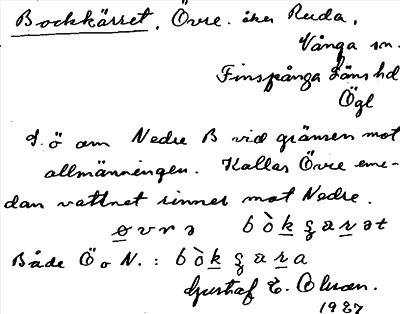 Bockkärret, Övre. åker Ruda,
Vånga sn.
Finspånga läns hd
Ögl
S. ö om Nedre B vid gränsen mot
allmänningen. Kallas Övre eme-
dan vattnet rinner mot Nedre.
øvrə bòkʒarət
Både Ö o N. : bòkʒara
Gustaf E. Olsson.
1927